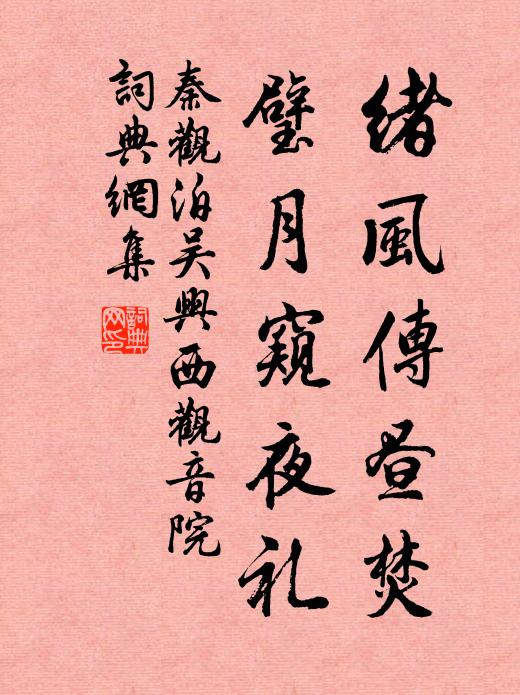 緒風傳昼焚
璧月窺夜礼
秦觀泊吴興西觀音院
詞典網集
詞典網印